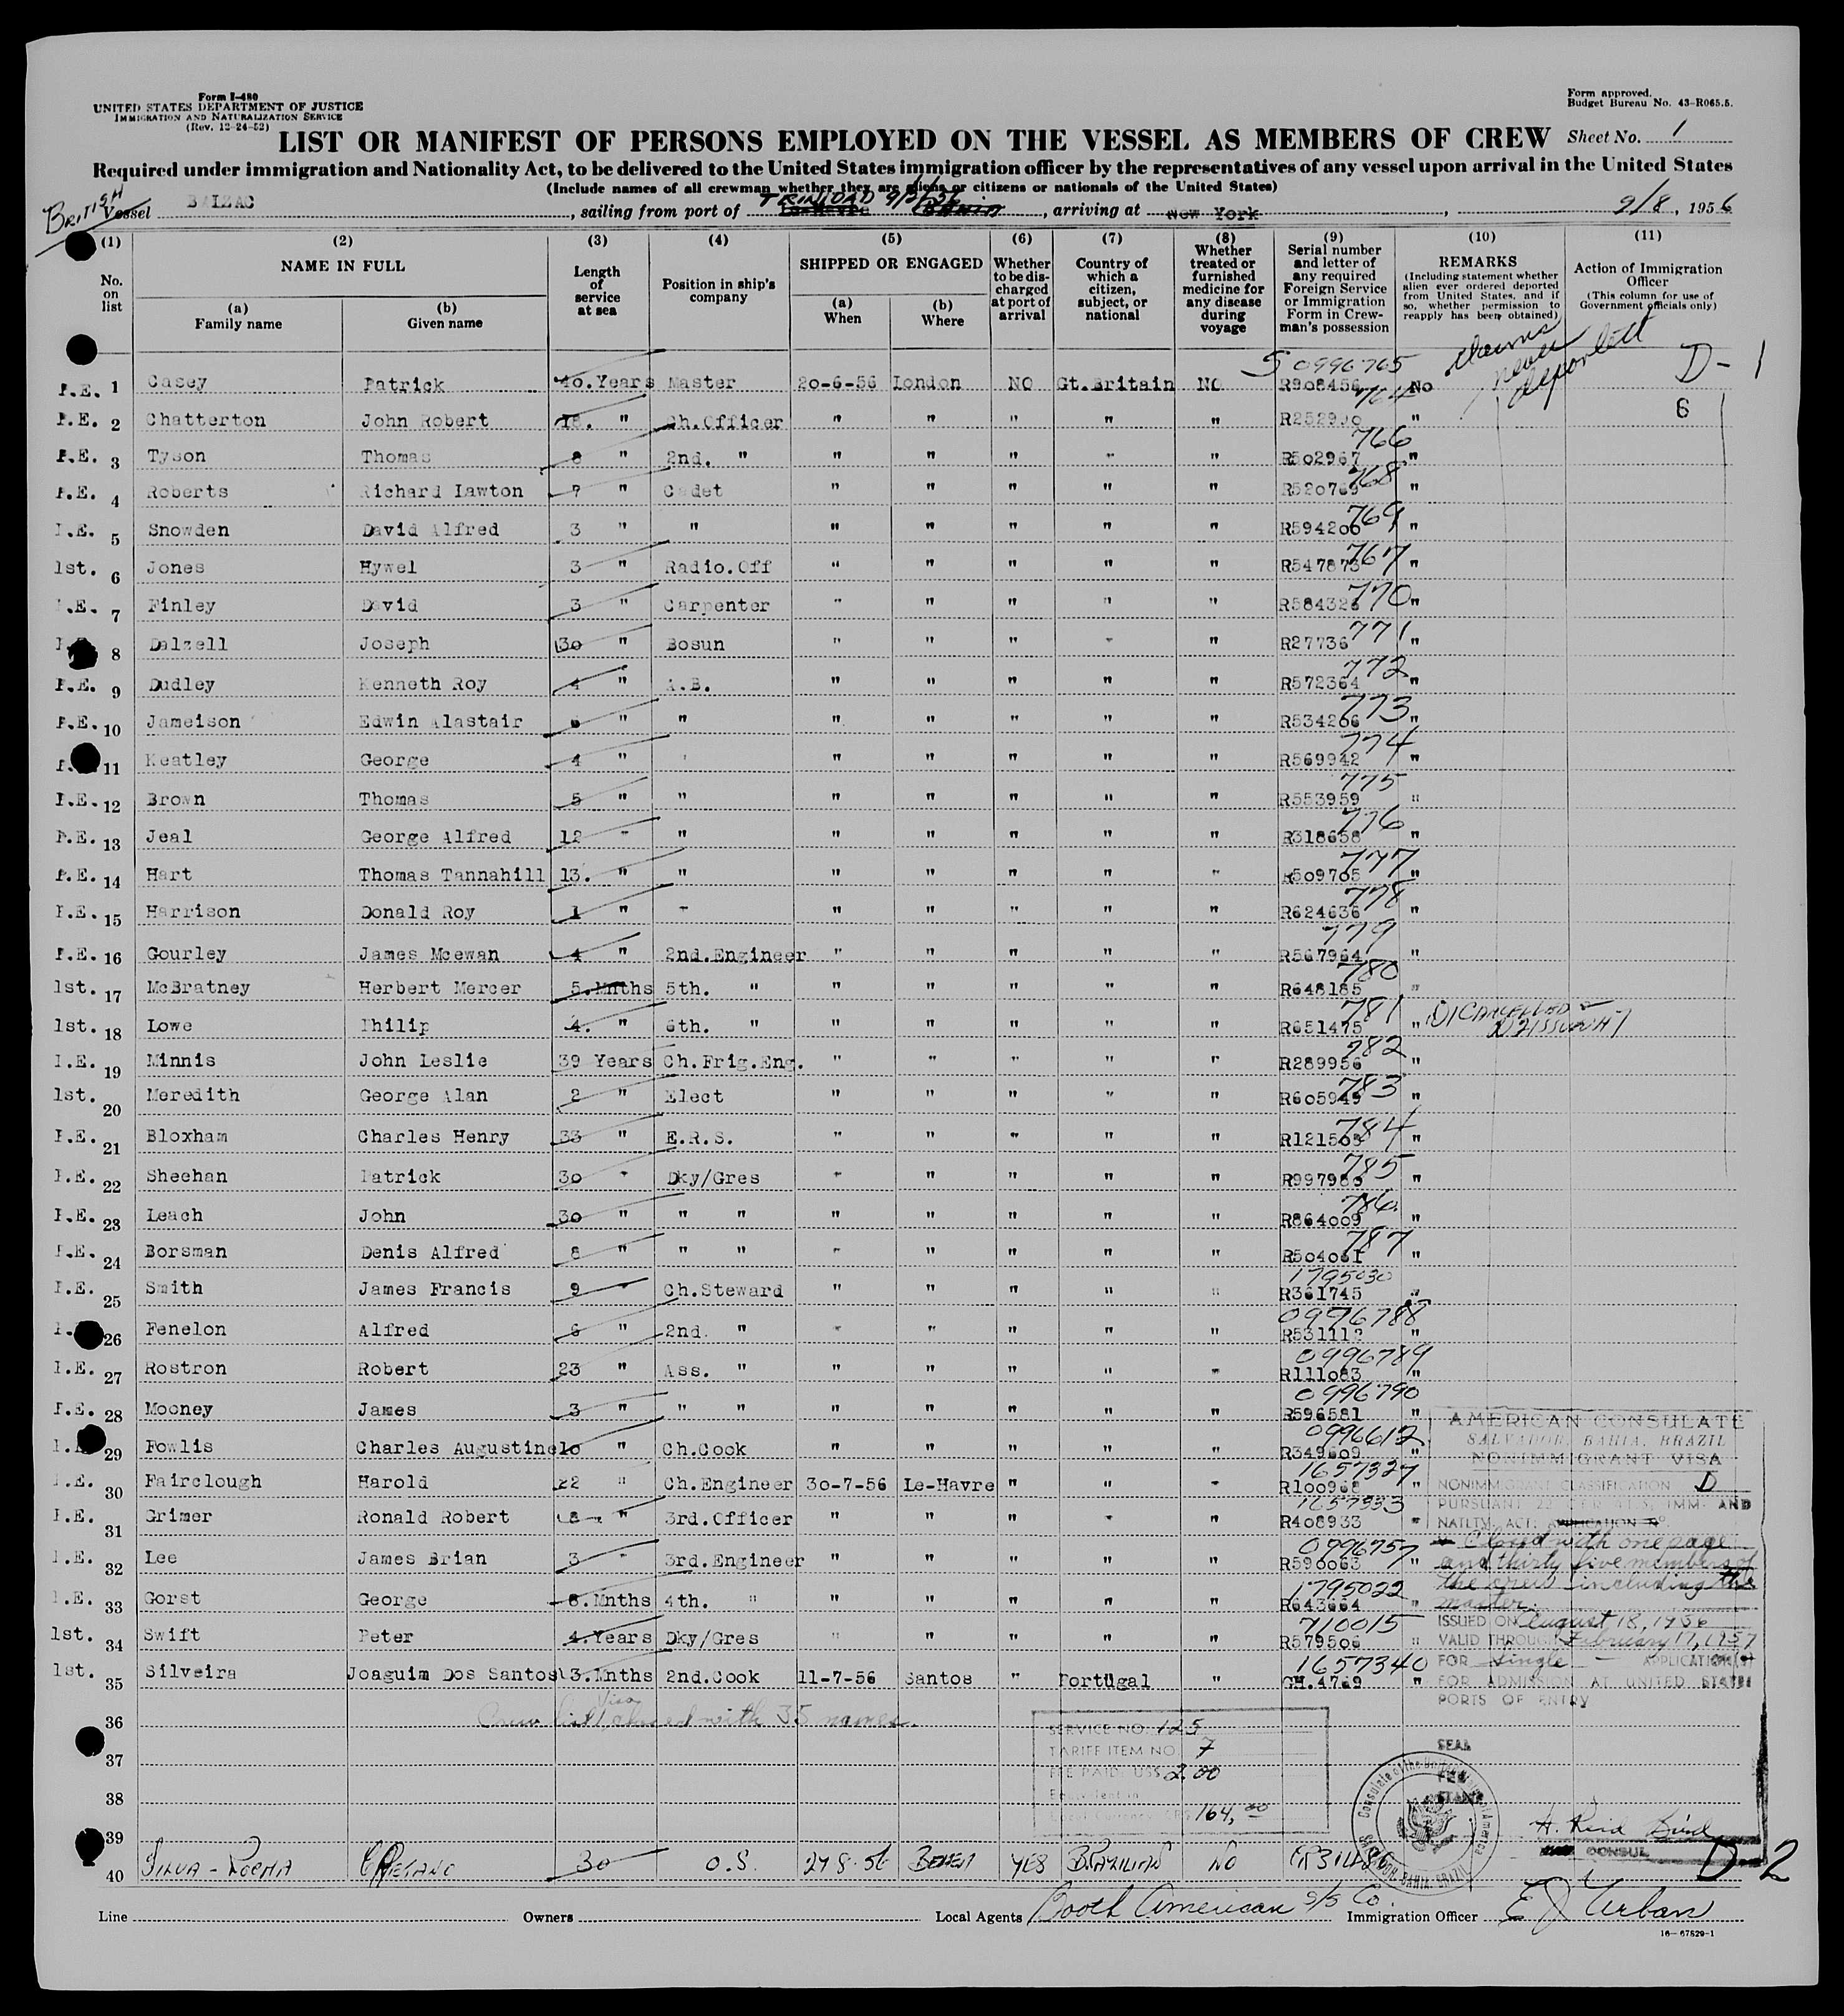 Form I-480
UNITED STATES DEPARTMENT OF JUSTICE
IMMIGRATION AND NATURALIZATION SERVICE
(Rev. 12-24-52)
Form approved.
Budget Bureau No. 43-R065.5.
LIST OR MANIFEST OF PERSONS EMPLOYED ON THE VESSEL AS MEMBERS OF CREW
Sheet No. 1
Required under immigration and Nationality Act, to be delivered to the United States immigration officer by the representatives of any vessel upon arrival in the United States
(Include names of all crewman whether they are aliens or citizens or nationals of the United States)
BRITISH Vessel BALZAC, sailing from port of TRINIDAD, arriving at New York, 9/8, 1956
(1) (2) (3) (4) (5) (6) (7) (8) (9) (10) (11)
No. on list
NAME IN FULL
(a) Family name
(b) Given name
Length of service at sea
Position in ship's company
SHIPPED OR ENGAGED
(a) When
(b) Where
Whether to be discharged at port of arrival
Country of which a citizen, subject, or national
Whether treated or furnished medicine for any disease during voyage
Serial number and letter of any required Foreign Service or Immigration Form in Crewman's possession
REMARKS
(Including statement whether alien ever ordered deported from United States, and if so, whether permission to reapply has been obtained)
Action of Immigration Officer
(This column for use of Government officials only)
claims never deported
D-1
6
S 0996765
P.E. 1 Casey Patrick 40.Years Master 20-6-56 London NO Gt.Britain NO R908456 No
764
P.E. 2 Chatterton John Robert 18. " Ch.Officer " " " " " "
766
P.E. 3 Tyson Thomas 8 " 2nd. " " " " " " R502967 "
768
P.E. 4 Roberts Richard Lawton 7 " Cadet " " " " " R520769 "
769
P.E. 5 Snowden David Alfred 3 " " " " " " " R594200 "
767
1st. 6 Jones Hywel 3 " Radio.Off " " " " " R547873 "
770
P.E. 7 Finley David 3 " Carpenter " " " " " R584326 "
771
8 Dalzell Joseph 30 " Bosun " " " " " R27736 "
772
P.E. 9 Dudley Kenneth Roy 4 " A.B. " " " " " R572364 "
773
P.E. 10 Jameison Edwin Alastair 6 " " " " " " " R534266 "
774
11 Keatley George 4 " " " " " " " R569942 "
775
P.E. 12 Brown Thomas 5 " " " " " " " R553959 "
776
P.E. 13 Jeal George Alfred 12 " " " " " " " R318658 "
777
P.E. 14 Hart Thomas Tannahill 13. " " " " " " " R509705 "
778
P.E. 15 Harrison Donald Roy 1 " " " " " " " R624636 "
779
P.E. 16 Gourley James Mcewan 4 " 2nd.Engineer " " " " " R567964 "
780
1st. 17 McBratney Herbert Mercer 5.Mnths 5th. " " " " " " R648185 "
781
1st. 18 Lowe Philip 4. " 6th. " " " " " " R651475 " CANCELLED
782
P.E. 19 Minnis John Leslie 39 Years Ch.Frig.Eng. " " " " " R289956 "
783
1st. 20 Meredith George Alan 2 " Elect " " " " " R605949 "
784
P.E. 21 Bloxham Charles Henry 33 " E.R.S. " " " " " R121503 "
785
P.E. 22 Sheehan Patrick 30 " Dky/Gres " " " " " R997980 "
786
P.E. 23 Leach John 30 " " " " " " " " R864009 "
787
P.E. 24 Borsman Denis Alfred 8 " " " " " " " " R504061 "
1795030
P.E. 25 Smith James Francis 9 " Ch.Steward " " " " " R361745 "
0996788
26 Fenelon Alfred 6 " 2nd. " " " " " " "
0996789
P.E. 27 Rostron Robert 23 " Ass. " " " " " " R111083 "
0996790
P.E. 28 Mooney James 3 " " " " " " " " R596581 "
0996612
29 Powlis Charles Augustine 10 " Ch.Cook " " " " " R349609 "
1657327
P.E. 30 Fairclough Harold 22 " Ch.Engineer 30-7-56 Le-Havre " " " R100968 "
1657333
P.E. 31 Grimer Ronald Robert 8 " 3rd.Officer " " " " " R408933 "
0796757
P.E. 32 Lee James Brian 3 " 3rd.Engineer " " " " " R590063 "
1795022
P.E. 33 Gorst George 8.Mnths 4th. " " " " " " R643664 "
710015
1st. 34 Swift Peter 4.Years Dky/Gres " " " " " R579506 "
1657340
1st. 35 Silveira Joaguim Dos Santos 3.Mnths 2nd.Cook 11-7-56 Santos " Portugal " GH.4769 "
AMERICAN CONSULATE
SALVADOR, BAHIA, BRAZIL
NONIMMIGRANT VISA
NONIMMIGRANT CLASSIFICATION D
PURSUANT 22 CFR 41.5, IMM. AND
NATLTY. ACT: APPLICATION No.
Closed with one page
and thirty five members of
the crew including the
master.
ISSUED ON August 18, 1956
VALID THROUGH February 17, 1957
FOR Single APPLICATION(S)
FOR ADMISSION AT UNITED STATES
PORTS OF ENTRY
36 Crew list visa closed with 35 names.
37
38
39
SERVICE NO. 125
TARIFF ITEM NO. 7
FEE PAID: US$ 2.00
Local Currency 164,00
SEAL
FEE
STAMP
Consulate of the United States of America
SALVADOR, BAHIA, BRAZIL
H. Reid Bird
CONSUL
40 SILVA - ROCHA 30 O.S. 27 8-56 BELEM YES BRAZILIAN NO
D-2
Line Owners Local Agents Booth American S/S Co. Immigration Officer E J Urban
16-67829-1